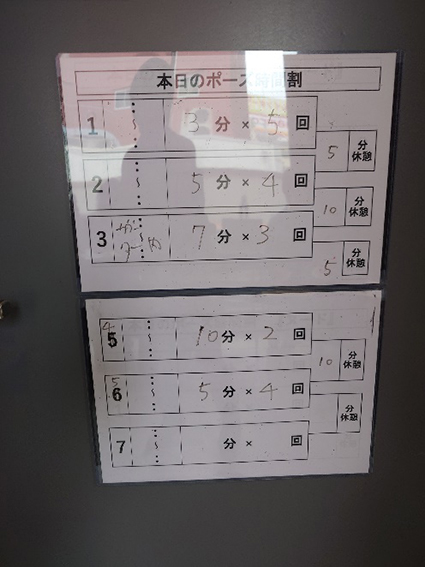 本日のポーズ時間割
1 : ~ : 3 分 × 5 回
5 分休憩
2 : ~ : 5 分 × 4 回
10 分休憩
3 : ~ : 7 分 × 3 回
5 分休憩
4 5 : ~ : 10 分 × 2 回
10 分休憩
5 6 : ~ : 5 分 × 4 回
分休憩
7 : ~ : 分 × 回